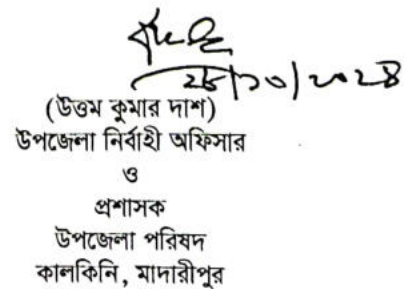 ২৮/১০/২০২৪
(উত্তম কুমার দাশ)
উপজেলা নির্বাহী অফিসার
ও
প্রশাসক
উপজেলা পরিষদ
কালকিনি, মাদারীপুর